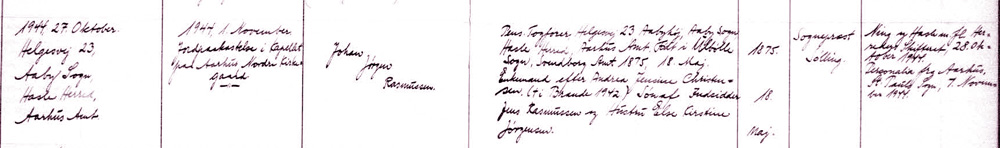 1944 27. Oktober.
Helgesvej 23,
Aaby Sogn,
Hasle Herred,
Aarhus Amt.
1944, 1. November.
Jordpaakastelse i Kapellet
paa Aarhus Nordre Kirke-
gaard
Johan
Jörgen
Rasmussen.
Pens. Togfører Helgesvej 23 Aabyhöj, Aaby Sogn
Hasle Herred, Aarhus Amt. Født i Ulbølle
Sogn, Svendborg Amt 1875, 18 Maj.
Enkemand efter Andrea Jensine Christen-
sen. († i Brande 1942) Sön af Indsidder
Jens Rasmussen og Hustru Else Kirstine
Jörgensen.
1875.
18.
Maj.
Sognepræst
Sölling.
Ning og Hasle m. fl. Her-
reders Skifteret 28. Okt-
ober 1944.
Personalia fra Aarhus,
St. Pauls Sogn, 7. Novem-
ber 1944.